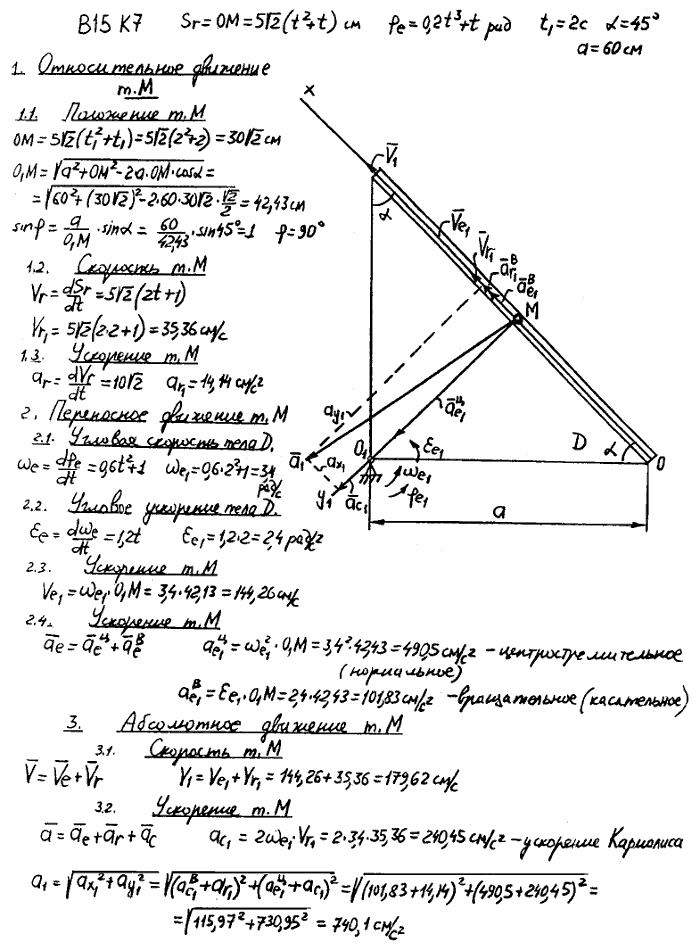 В15 К7 Sr=OM=5√2(t²+t) см φe=0,2t³+t рад t₁=2c α=45°
a=60 см
1. Относительное движение
т.М
1.1. Положение т.М
OM=5√2(t₁²+t₁)=5√2(2²+2)=30√2 см
O₁M=√(a²+OM²-2a·OM·cosα)=
=√(60²+(30√2)²-2·60·30√2·√2/2)=42,43 см
sinφ=a/O₁M·sinα=60/42,43·sin45°=1 φ=90°
1.2. Скорость т.М
Vr=dSr/dt=5√2(2t+1)
Vr₁=5√2(2·2+1)=35,36 см/с
1.3. Ускорение т.М
ar=dVr/dt=10√2 ar₁=14,14 см/с²
2. Переносное движение т.М
2.1. Угловая скорость тела D.
ωe=dφe/dt=0,6t²+1 ωe₁=0,6·2²+1=3,4
рад/с
2.2. Угловое ускорение тела D.
Ee=dωe/dt=1,2t Ee₁=1,2·2=2,4 рад/с²
2.3. Ускорение т.М
Ve₁=ωe₁·O₁M=3,4·42,13=144,26 см/с
2.4. Ускорение т.М
āe=āeᶸ+āeᴮ ae₁ᶸ=ωe₁²·O₁M=3,4²·42,43=490,5 см/с² – центростремительное
(нормальное)
ae₁ᴮ=Ee₁·O₁M=2,4·42,43=101,83 см/с² – вращательное (касательное)
3. Абсолютное движение т.М
3.1. Скорость т.М
V̄=V̄e+V̄r V₁=Ve₁+Vr₁=144,26+35,36=179,62 см/с
3.2. Ускорение т.М
ā=āe+ār+āc ac₁=2ωe₁·Vr₁=2·3,4·35,36=240,45 см/с² – ускорение Кариолиса
a₁=√(ax₁²+ay₁²)=√((ac₁ᴮ+ar₁)²+(ae₁ᶸ+ac₁)²)=√((101,83+14,14)²+(490,5+240,45)²)=
=√(115,97²+730,95²)=740,1 см/с²
x
V̄₁
α
V̄e₁
V̄r₁
ār₁ᴮ
āe₁ᴮ
M
āe₁ᶸ
ay₁
ā₁
ax₁
y₁
āc₁
O₁
Ee₁
ωe₁
φe₁
D
α
O
a